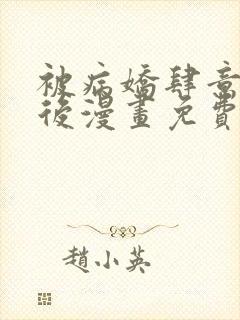 被病嬌肆意
後漫畫免費
趙小英